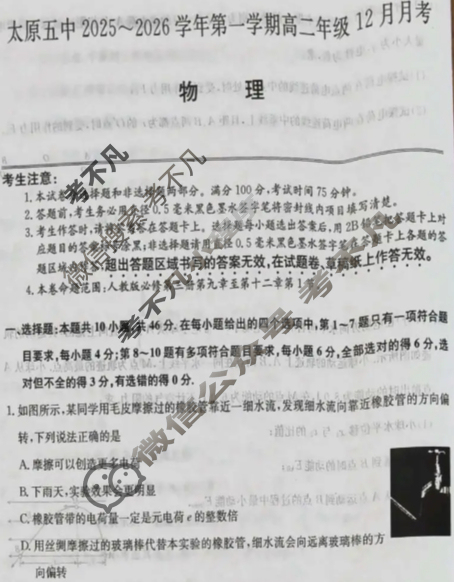 太原五中2025～2026学年第一学期高二年级12月月考
物 理
考生注意：
1.本试卷分选择题和非选择题两部分。满分100分，考试时间75分钟。
2.答题前，考生务必用直径0.5毫米黑色墨水签字笔将密封线内项目填写清楚。
3.考生作答时，请将答案答在答题卡上。选择题每小题选出答案后，用2B铅笔把答题卡上对
应题目的答案标号涂黑；非选择题请用直径0.5毫米黑色墨水签字笔在答题卡上各题的答
题区域内作答，超出答题区域书写的答案无效，在试题卷、草稿纸上作答无效。
4.本卷命题范围：人教版必修第三册第九章至第十二章第1节
一、选择题：本题共10小题，共46分.在每小题给出的四个选项中，第1～7题只有一项符合题
目要求，每小题4分；第8～10题有多项符合题目要求，每小题6分，全部选对的得6分，选
对但不全的得3分，有选错的得0分.
1.如图所示，某同学用毛皮摩擦过的橡胶管靠近一细水流，发现细水流向靠近橡胶管的方向偏
转，下列说法正确的是
A.摩擦可以创造更多电荷
B.下雨天，实验效果会更明显
C.橡胶管带的电荷量一定是元电荷e的整数倍
D.用丝绸摩擦过的玻璃棒代替本实验的橡胶管，细水流会向远离玻璃棒的方
向偏转
微信公众号 考不凡
考不凡